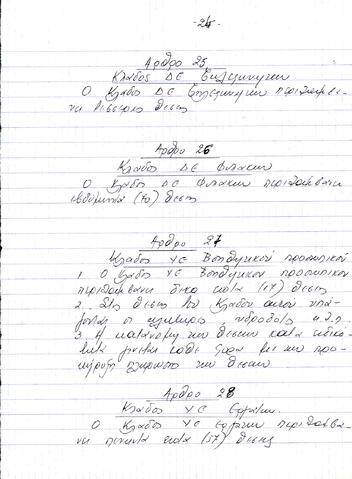 -24-
Άρθρο 25
Κλάδος ΔΕ
Ο Κλάδος ΔΕ περιλαμβά-
νει τέσσερις θέσεις
Άρθρο 26
Κλάδος ΔΕ Φυλάκων
Ο Κλάδος ΔΕ Φυλάκων περιλαμβάνει
εβδομήντα (70) θέσεις
Άρθρο 27
Κλάδος ΥΕ Βοηθητικού προσωπικού
1. Ο Κλάδος ΥΕ Βοηθητικού προσωπικού
περιλαμβάνει δέκα επτά (17) θέσεις
2. Στις θέσεις του Κλάδου αυτού υπά-
γονται οι κ.λ.π.
3. Η κατανομή των θέσεων κατά ειδικό-
τητα γίνεται κάθε φορά με την προ-
κήρυξη πλήρωσης των θέσεων
Άρθρο 28
Κλάδος ΥΕ Εργατών
Ο Κλάδος ΥΕ Εργατών περιλαμβά-
νει πενήντα επτά (57) θέσεις